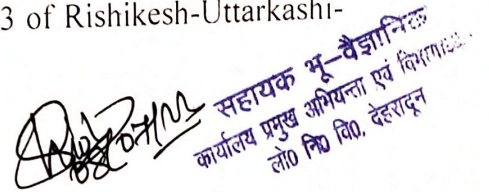 3 of Rishikesh-Uttarkashi-
सहायक भू-वैज्ञानिक
कार्यालय प्रमुख अभियन्ता एवं
लो० नि० वि०, देहरादून